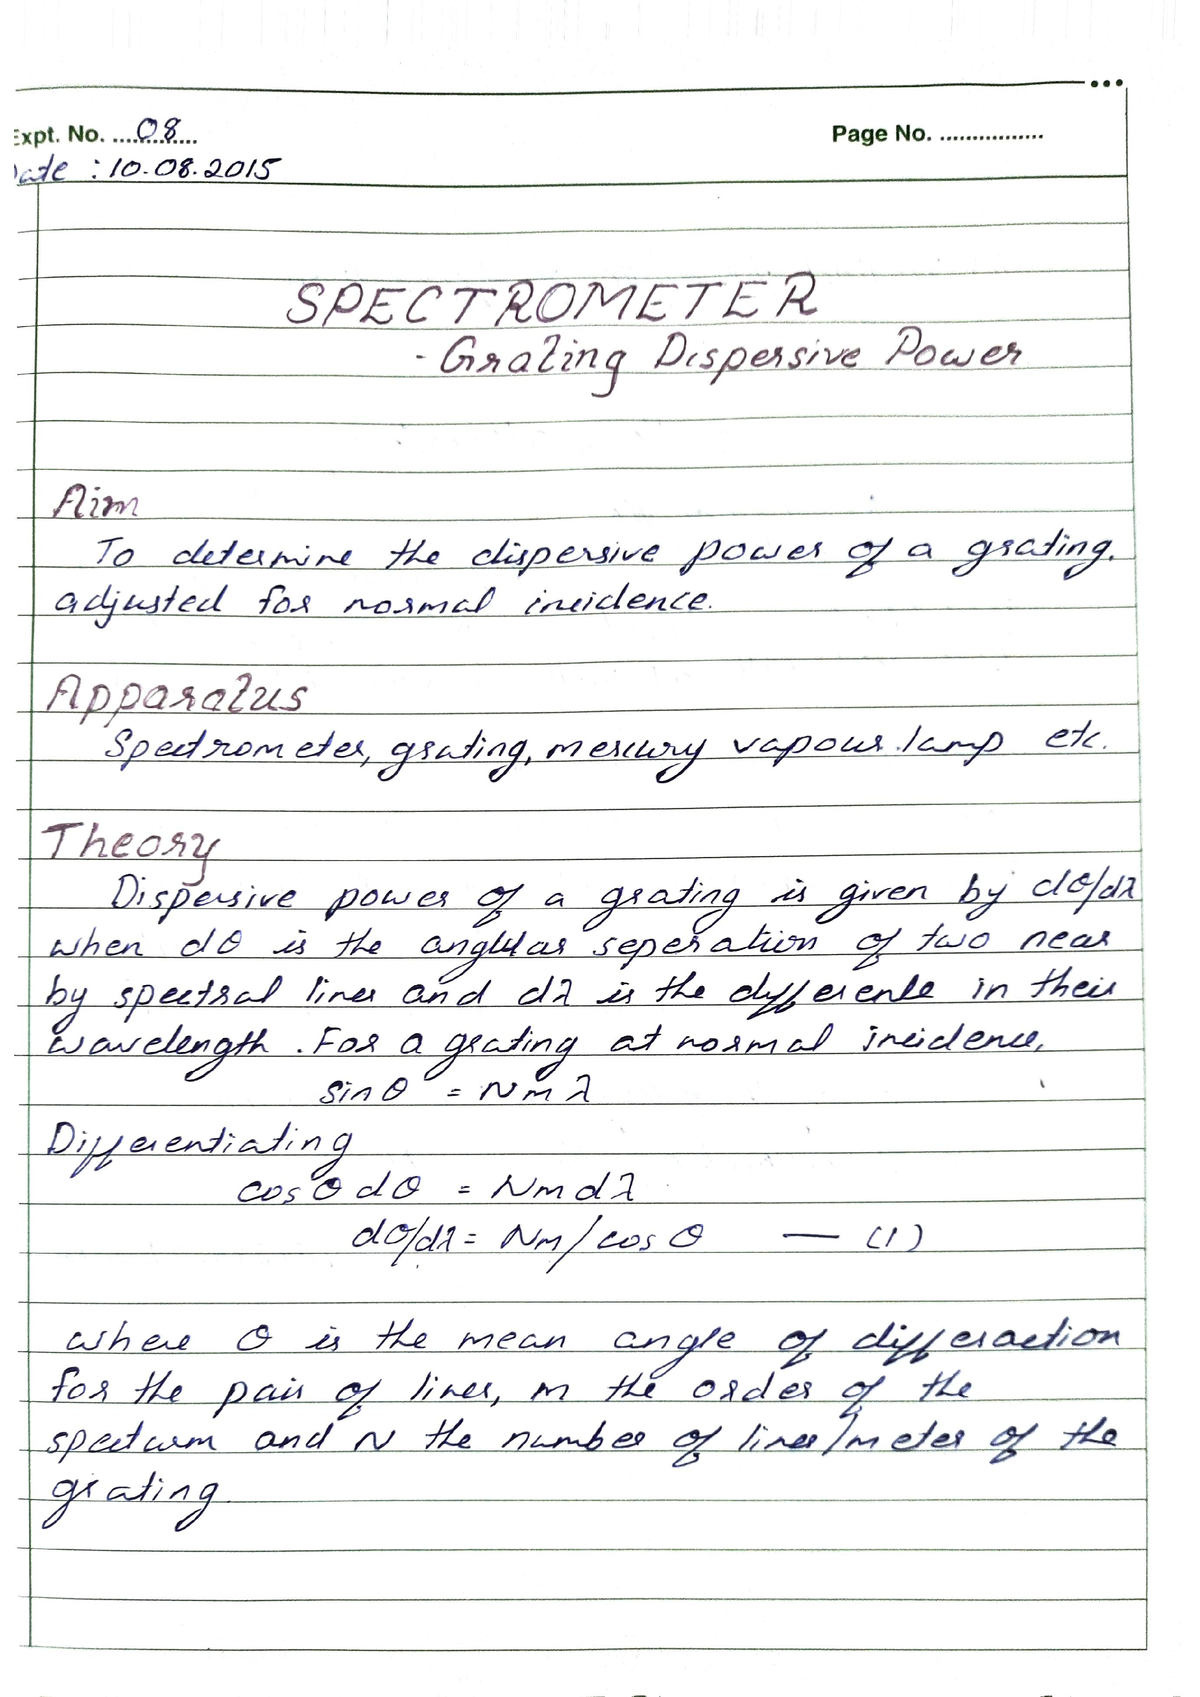 Expt. No. ....08....
Date : 10.08.2015
Page No. ................
SPECTROMETER
- Grating Dispersive Power
Aim
To determine the dispersive power of a grating.
adjusted for normal incidence.
Apparatus
Spectrometer, grating, mercury vapour lamp etc.
Theory
Dispersive power of a grating is given by dθ/dλ
when dθ is the angular seperation of two near
by spectral lines and dλ is the difference in their
wavelength. For a grating at normal incidence,
sinθ = Nmλ
Differentiating
cosθdθ = Nmdλ
dθ/dλ = Nm/cosθ — (1)
where θ is the mean angle of differaction
for the pair of lines, m the order of the
spectrum and N the number of lines/meter of the
grating.